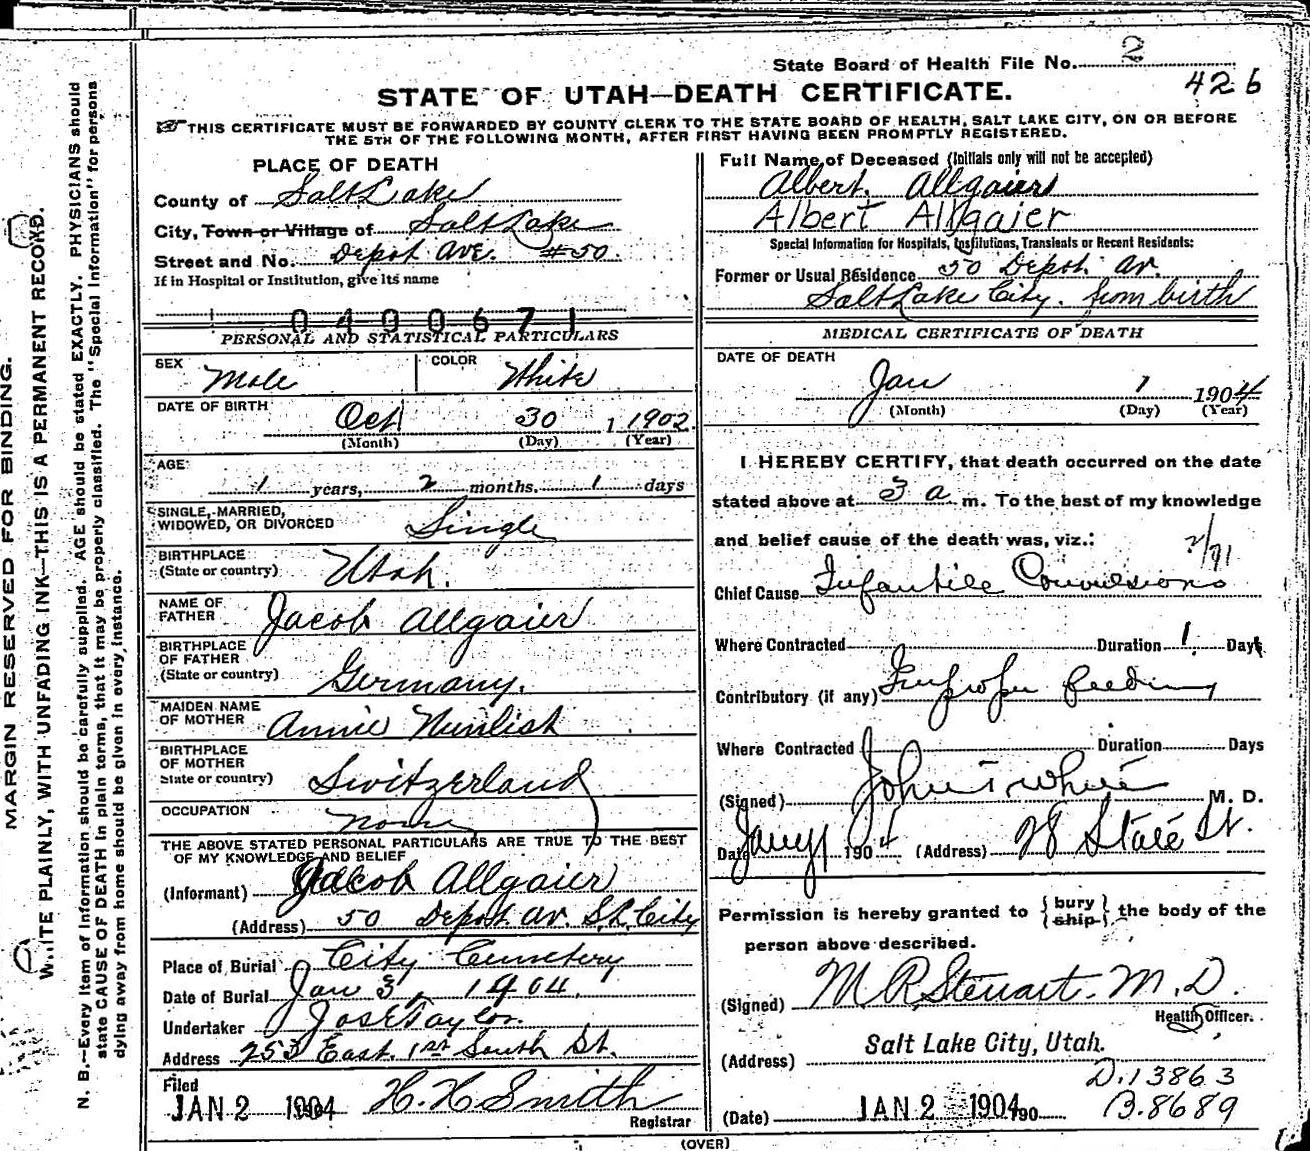 State Board of Health File No. 2
426
STATE OF UTAH—DEATH CERTIFICATE.
THIS CERTIFICATE MUST BE FORWARDED BY COUNTY CLERK TO THE STATE BOARD OF HEALTH, SALT LAKE CITY, ON OR BEFORE
THE 5TH OF THE FOLLOWING MONTH, AFTER FIRST HAVING BEEN PROMPTLY REGISTERED.
MARGIN RESERVED FOR BINDING.
WRITE PLAINLY, WITH UNFADING INK—THIS IS A PERMANENT RECORD.
N. B.—Every item of information should be carefully supplied. AGE should be stated EXACTLY. PHYSICIANS should
state CAUSE OF DEATH in plain terms, that it may be properly classified. The "Special Information" for persons
dying away from home should be given in every instance.
PLACE OF DEATH
County of Salt Lake
City, Town or Village of Salt Lake
Street and No. Depot Ave. #50.
If in Hospital or Institution, give its name
0400671
PERSONAL AND STATISTICAL PARTICULARS
SEX Male COLOR White
DATE OF BIRTH Oct 30 1 1902.
(Month) (Day) (Year)
AGE 1 years, 2 months, 1 days
SINGLE, MARRIED,
WIDOWED, OR DIVORCED Single
BIRTHPLACE
(State or country) Utah.
NAME OF
FATHER Jacob Allgaier
BIRTHPLACE
OF FATHER
(State or country) Germany.
MAIDEN NAME
OF MOTHER Annie Nunlist
BIRTHPLACE
OF MOTHER
State or country) Switzerland
OCCUPATION None
THE ABOVE STATED PERSONAL PARTICULARS ARE TRUE TO THE BEST
OF MY KNOWLEDGE AND BELIEF
(Informant) Jacob Allgaier
(Address) 50 Depot av. S.L. City
Place of Burial City Cemetery
Date of Burial Jan 3, 1904.
Undertaker Jos E Taylor
Address 253 East. 1st South St.
Filed
JAN 2 1904 H. H. Smith
Registrar
Full Name of Deceased (Initials only will not be accepted)
Albert Allgaier
Albert Allgaier
Special Information for Hospitals, Institutions, Transients or Recent Residents:
Former or Usual Residence 50 Depot av.
Salt Lake City. from birth
MEDICAL CERTIFICATE OF DEATH
DATE OF DEATH
Jan 1 1904
(Month) (Day) (Year)
I HEREBY CERTIFY, that death occurred on the date
stated above at 3 a m. To the best of my knowledge
and belief cause of the death was, viz.:
71
Chief Cause Infantile Convulsions
Where Contracted Duration 1 Days
Contributory (if any) Improper feeding
Where Contracted Duration Days
(Signed) John T White M. D.
Date Jany 1 1904 (Address) 28 State St.
Permission is hereby granted to { bury ship } the body of the
person above described.
(Signed) M R Stewart. M. D.
Health Officer.
(Address) Salt Lake City, Utah.
D. 13863
(Date) JAN 2 1904 190 B. 8689
(OVER)